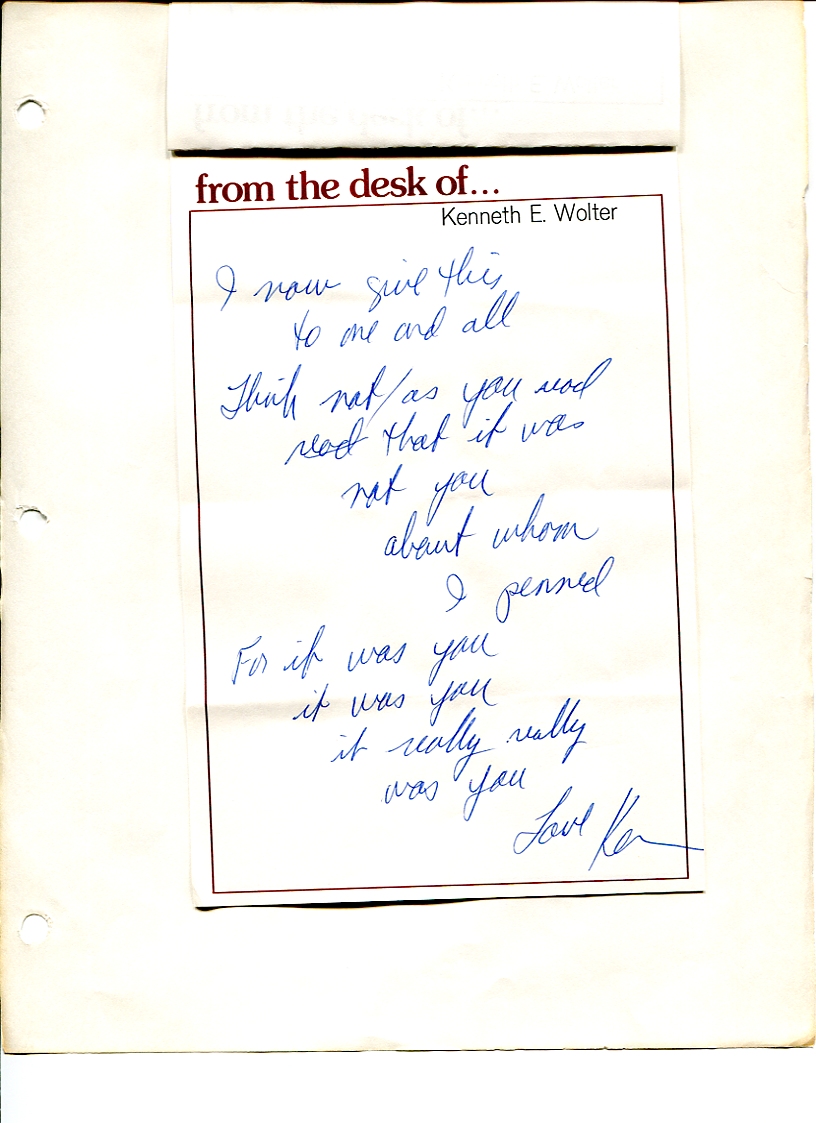 from the desk of...
Kenneth E. Wolter
I now give this
to one and all
Think not/as you read
read that it was
not you
about whom
I penned
For it was you
it was you
it really really
was you
Love Ken